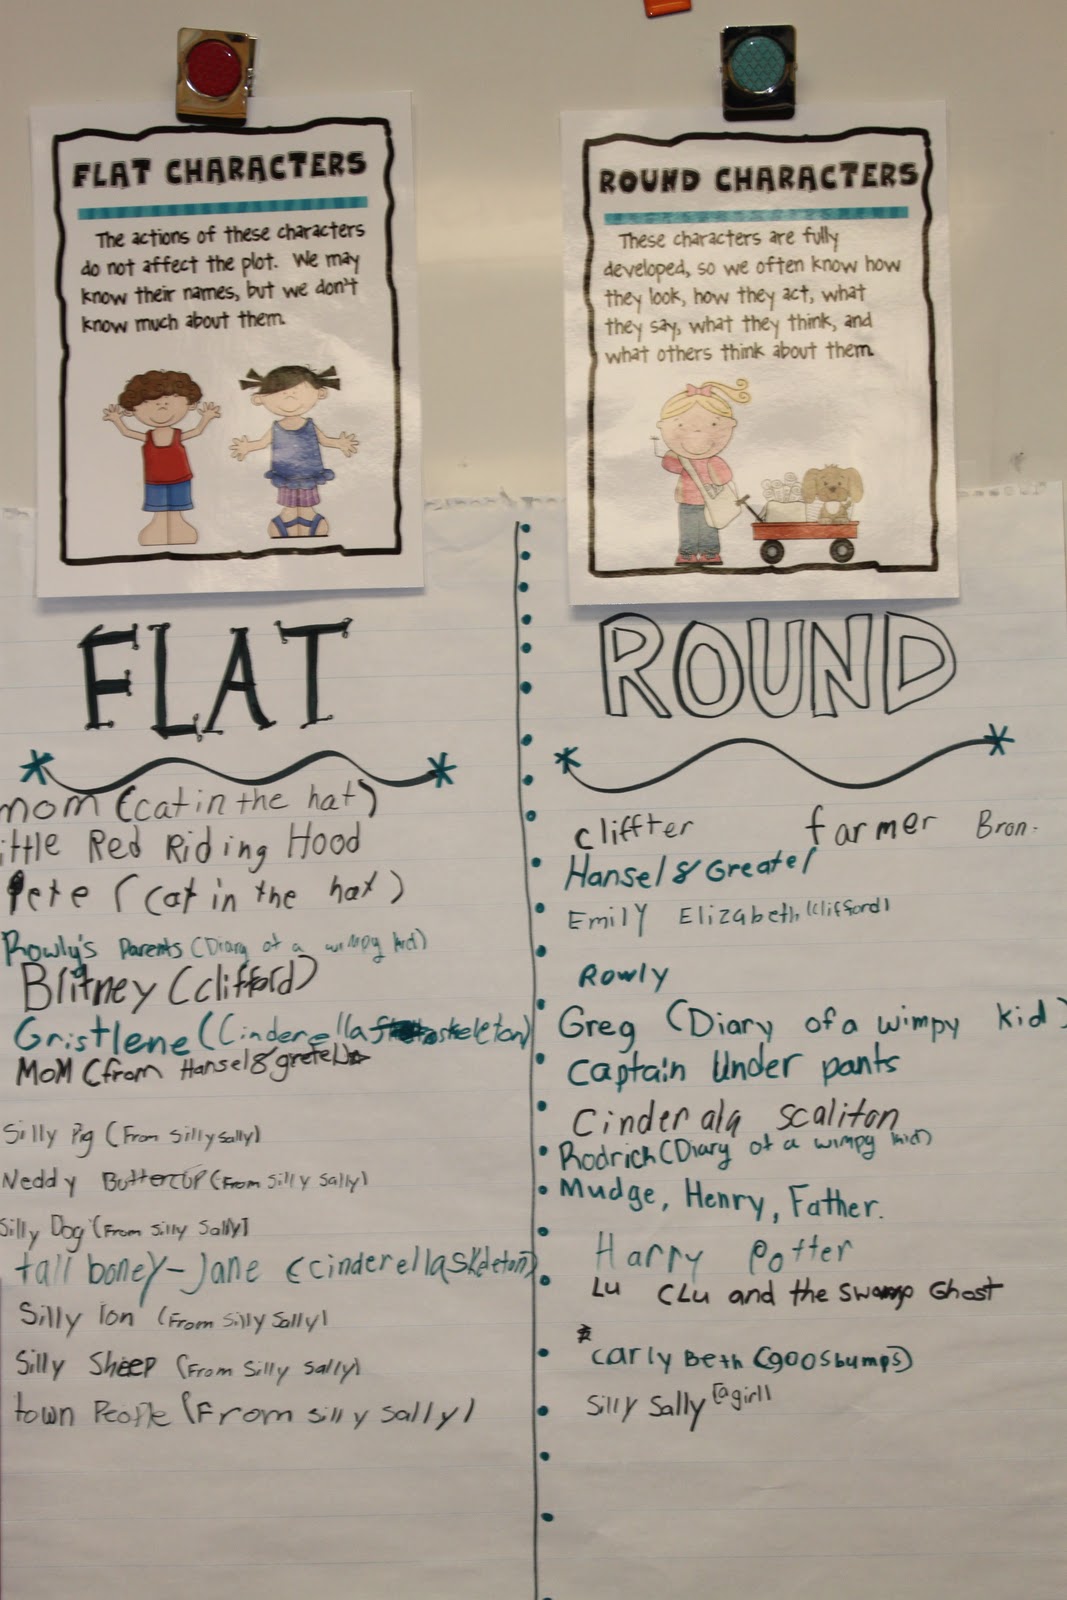 FLAT CHARACTERS
The actions of these characters
do not affect the plot. We may
know their names, but we don't
know much about them.
ROUND CHARACTERS
These characters are fully
developed, so we often know how
they look, how they act, what
they say, what they think, and
what others think about them.
FLAT
mom (cat in the hat)
ittle Red Riding Hood
Pete (cat in the hat)
Rowly's Parents (Diary of a wimpy kid)
Britney (clifford)
Gristlene (Cinderella skeleton)
MoM (from Hansel & gretel)
Silly Pig (From silly sally)
Neddy Buttercup (From silly sally)
Silly Dog (From silly sally)
tall boney-Jane (cinderella skeleton)
Silly lon (From silly sally)
Silly Sheep (From silly sally)
town People (From silly sally)
ROUND
cliffter farmer Bron.
Hansel & Greatel
Emily Elizabeth (clifford)
Rowly
Greg (Diary of a wimpy kid)
captain Under pants
Cinderala scaliton
Rodrich (Diary of a wimpy kid)
Mudge, Henry, Father.
Harry Potter
Lu CLu and the swamp Ghost
carly Beth (goosbumps)
silly sally (a girl)